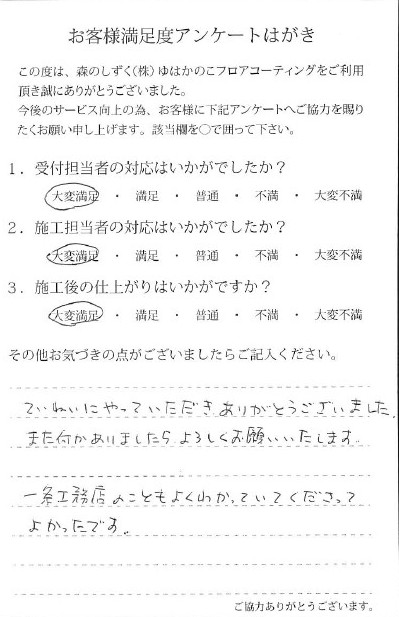 お客様満足度アンケートはがき
この度は、森のしずく(株)ゆはかのこフロアコーティングをご利用
頂き誠にありがとうございました。
今後のサービス向上の為、お客様に下記アンケートへご協力を賜り
たくお願い申し上げます。該当欄を○で囲って下さい。
1．受付担当者の対応はいかがでしたか？
大変満足 ・ 満足 ・ 普通 ・ 不満 ・ 大変不満
2．施工担当者の対応はいかがでしたか？
大変満足 ・ 満足 ・ 普通 ・ 不満 ・ 大変不満
3．施工後の仕上がりはいかがですか？
大変満足 ・ 満足 ・ 普通 ・ 不満 ・ 大変不満
その他お気づきの点がございましたらご記入ください。
ていねいにやっていただきありがとうございました。
また何かありましたらよろしくお願いいたします。
一条工務店のこともよくわかっていてくださって
よかったです。
ご協力ありがとうございます。